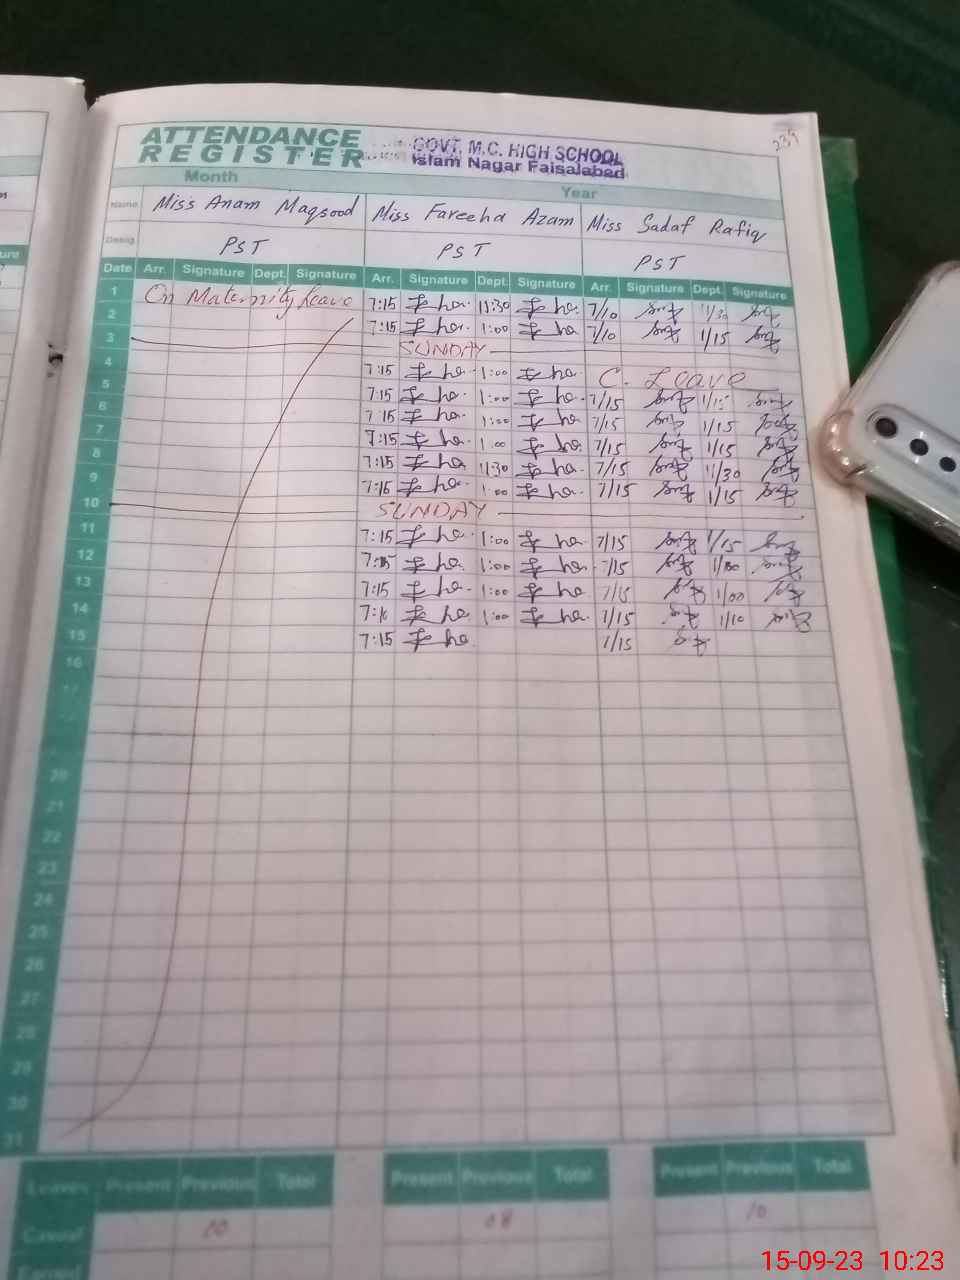 239
ATTENDANCE REGISTER
GOVT. M.C. HIGH SCHOOL
Islam Nagar Faisalabad
Month Year
Name Miss Anam Maqsood Miss Fareeha Azam Miss Sadaf Rafiq
Desig PST PST PST
Date Arr. Signature Dept. Signature Arr. Signature Dept. Signature Arr. Signature Dept. Signature
1 On Maternity Leave 7:15 11:30 7/10 11/30
2 7:15 1:00 7/10 1/15
3 SUNDAY
4 7:15 1:00 C. Leave
5 7:15 1:00 7/15 1/15
6 7:15 1:00 7/15 1/15
7 7:15 1:00 7/15 1/15
8 7:15 11:30 7/15 11/30
9 7:15 1:00 7/15 1/15
10 SUNDAY
11 7:15 1:00 7/15 1/15
12 7:15 1:00 7/15
13 7:15 1:00 7/15 1/00
14 1:00 7/15 1/10
15 7:15 7/15
16
20
21
22
23
24
25
26
27
28
29
30
31
Leaves Present Previous Total Present Previous Total Present Previous Total
Casual 10 08 10
Earned
15-09-23 10:23